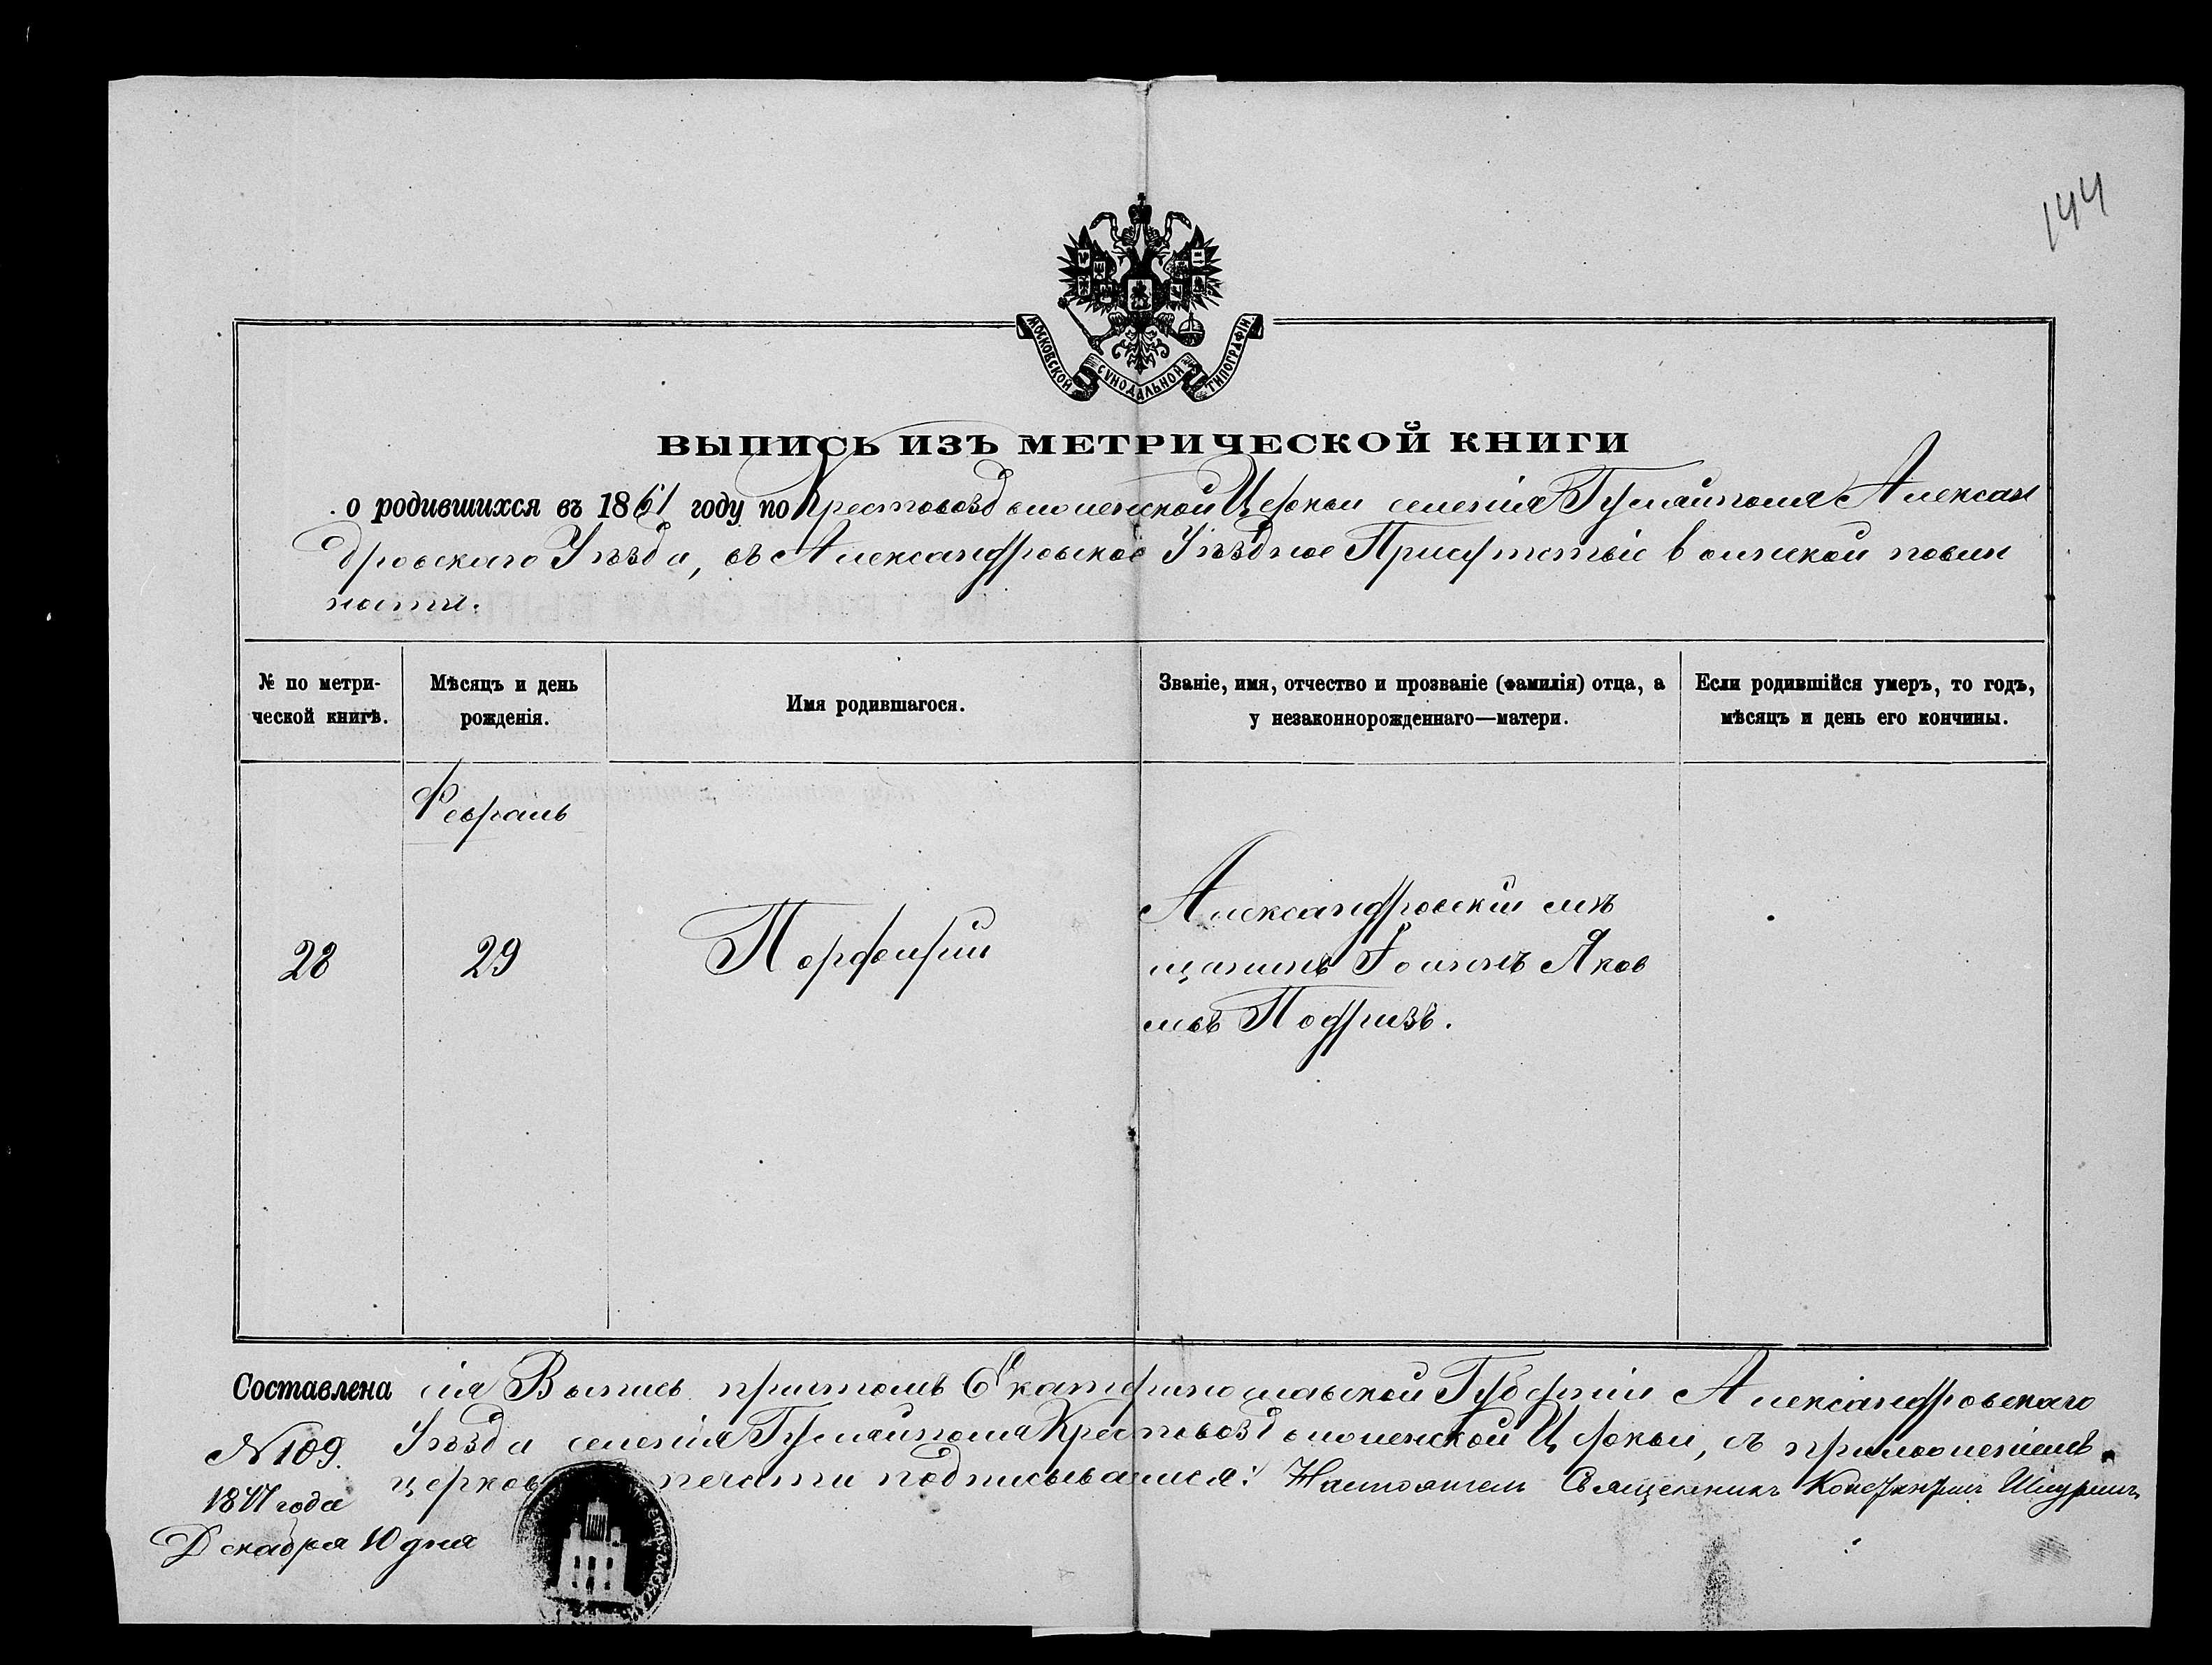 144
МОСКОВСКОЙ СѴНОДАЛЬНОЙ ТИПОГРАФІИ.
ВЫПИСЬ ИЗЪ МЕТРИЧЕСКОЙ КНИГИ
о родившихся въ 1861 году по Крестовоздвиженской Церкви селенія Гуляйполя Алексан
дровскаго Уѣзда, въ Александровское Уѣздное Присутствіе воинской повин
ности.
№ по метри-
ческой книгѣ.
Мѣсяцъ и день
рожденія.
Имя родившагося.
Званіе, имя, отчество и прозваніе (фамилія) отца, а
у незаконнорожденнаго—матери.
Если родившійся умеръ, то годъ,
мѣсяцъ и день его кончины.
Февраль
28
29
Порфирій
Александровскій мѣ
щанинъ Іоаннъ Яков
левъ
Составлена сія Выпись причтомъ Екатеринославской Губерніи Александровскаго
Уѣзда селенія Гуляйполя Крестовоздвиженской Церкви, съ приложеніемъ
церков печати подписываемся: Настоятель Священникъ
№ 109.
года
Декабря 10 дня